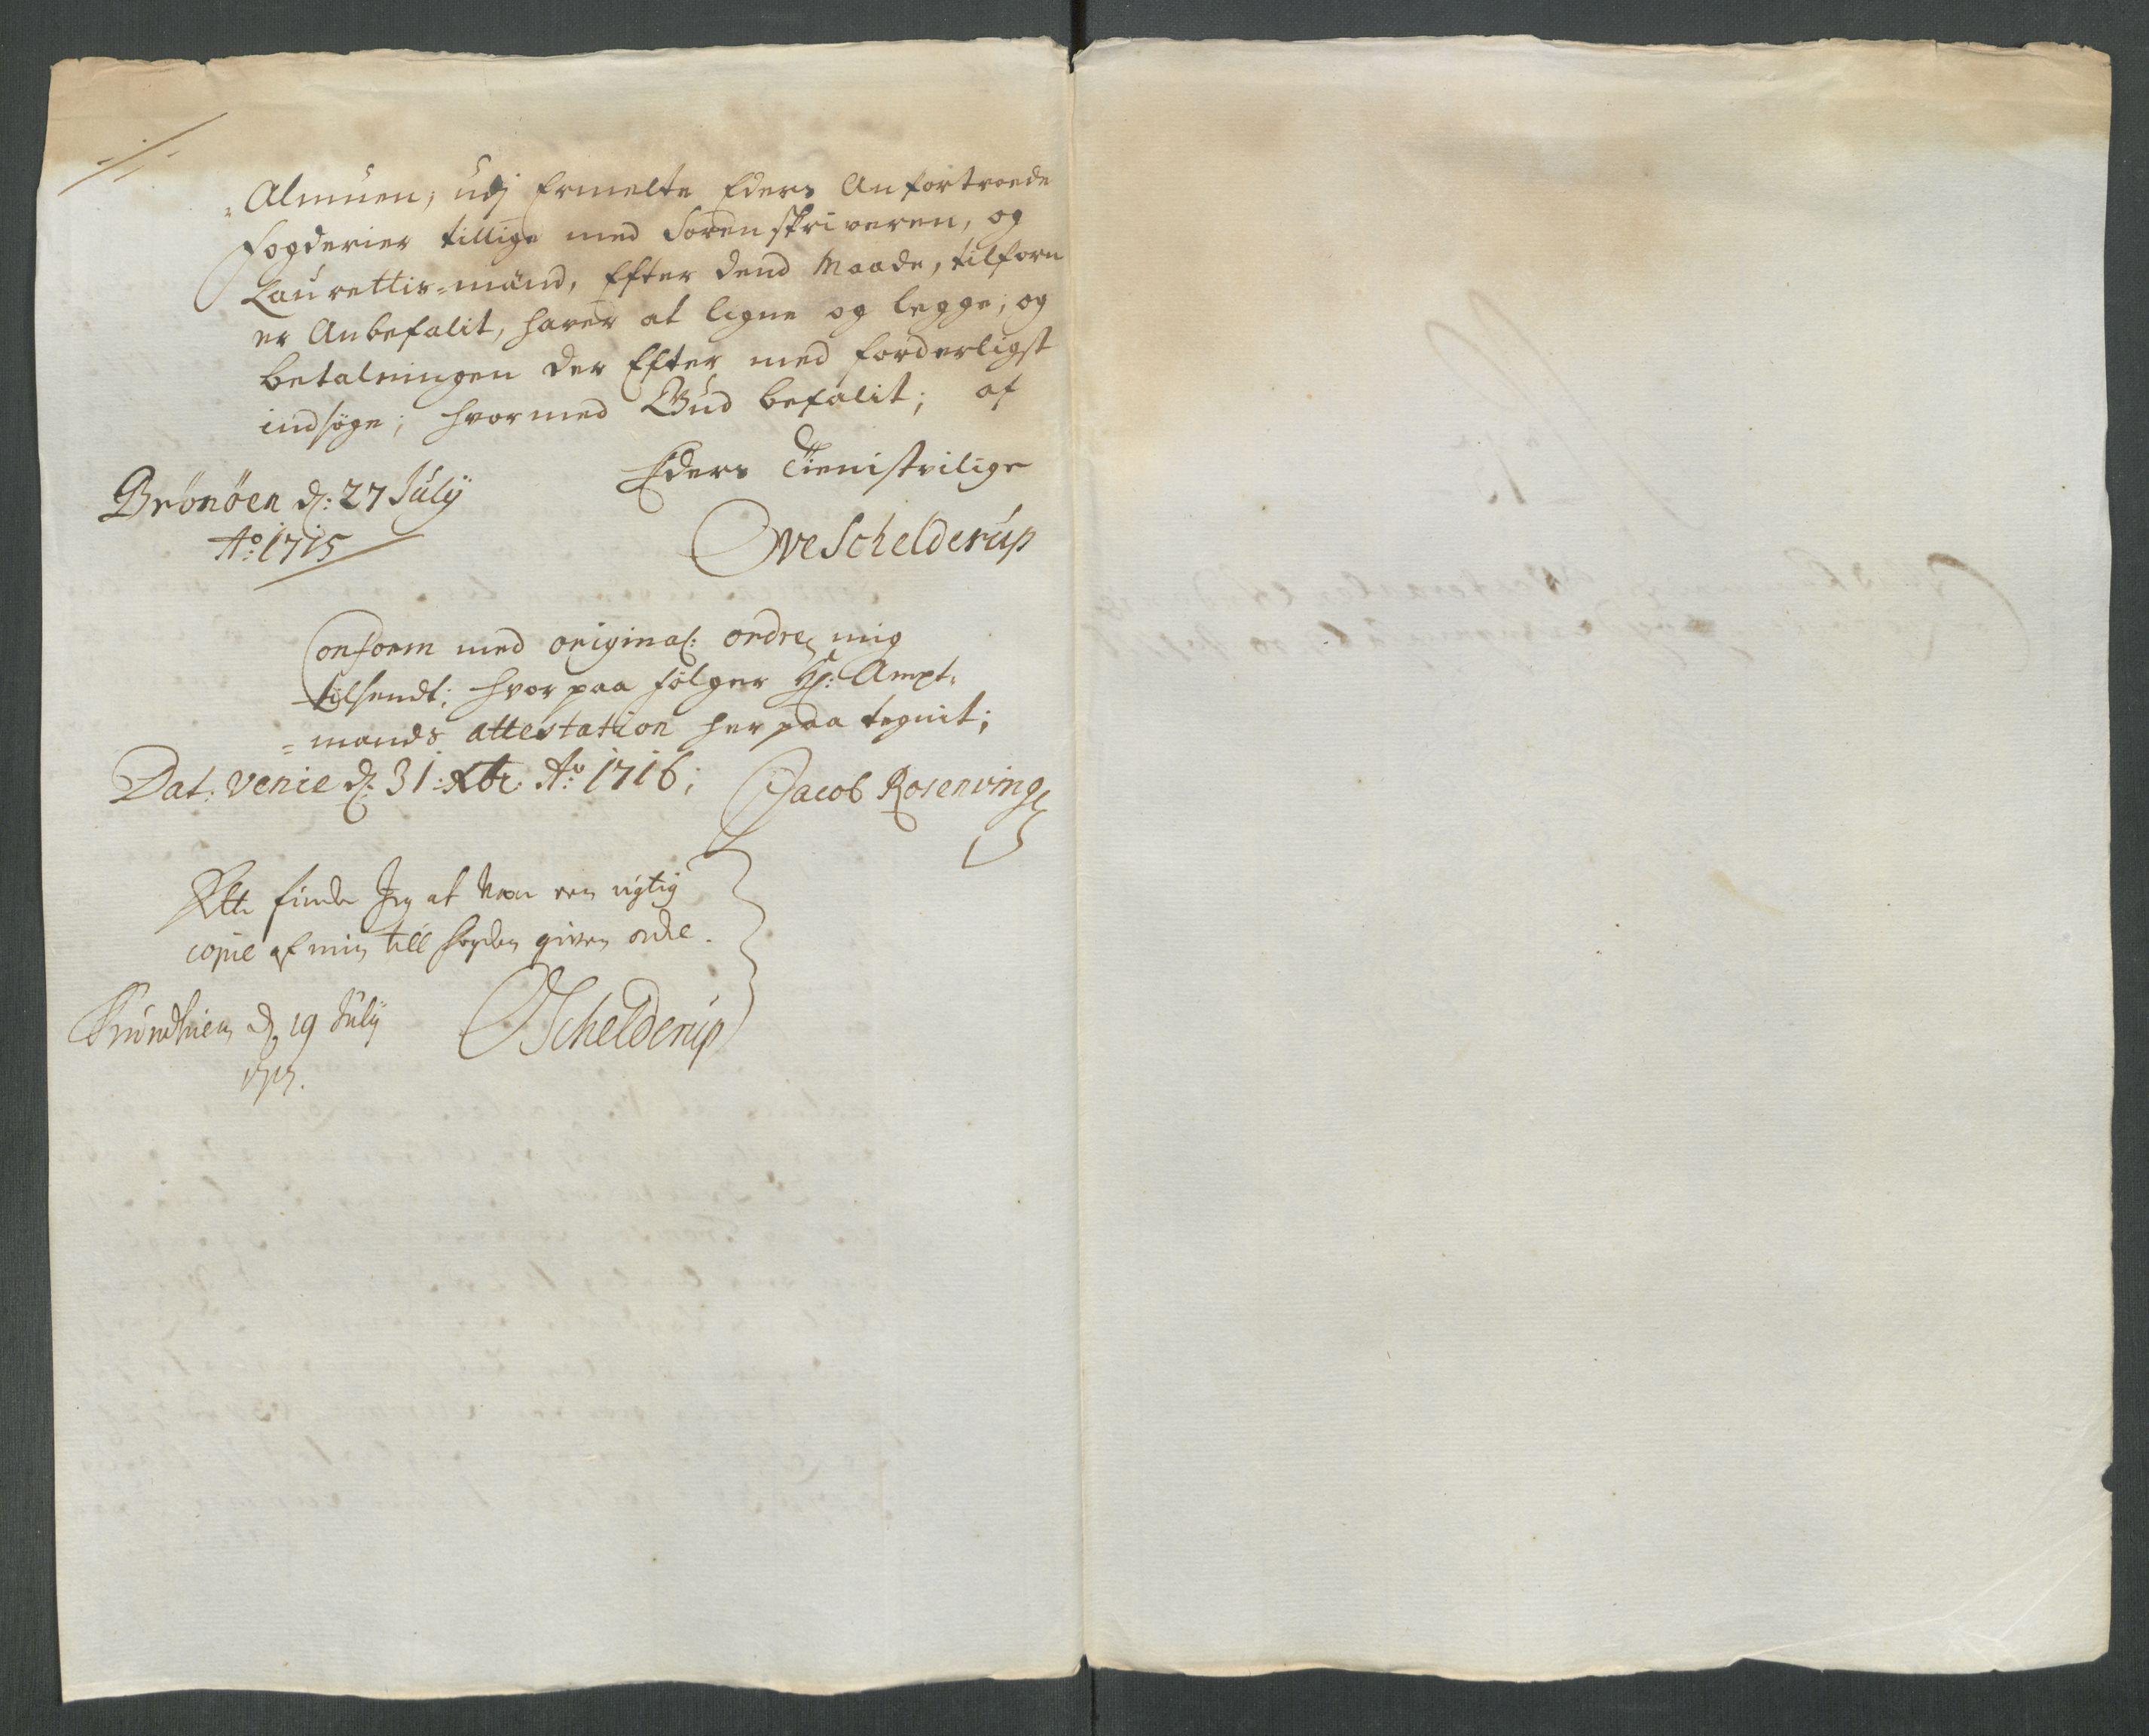 -//-
"Almuen, udj Ermelte Eders Anfortroede
fogderier tillige med Sorenskriveren, og
Laurettis-mænd, Efter dend Maade, tilforn
er Anbefalit, haver at ligne og legge, og
betalningen der Efter med forderligst
indsöge; hvormed Gud befalit; af
Eders Tienistvilige
Brönöen d: 27 Julÿ
Ao: 1715
Ove Schelderup
Conform med original: ordre mig
tilsendt; hvor paa følger Hr: Ampt-
=mands attestation her paa tegnit;
Dat: Venie d: 31: Xbr: Ao: 1716;
Jacob Rosenvinge
finder Jeg at være een rigtig
copie af min till fogden given ordre.
Trundhiem d. 19 Julÿ
OSchelderup